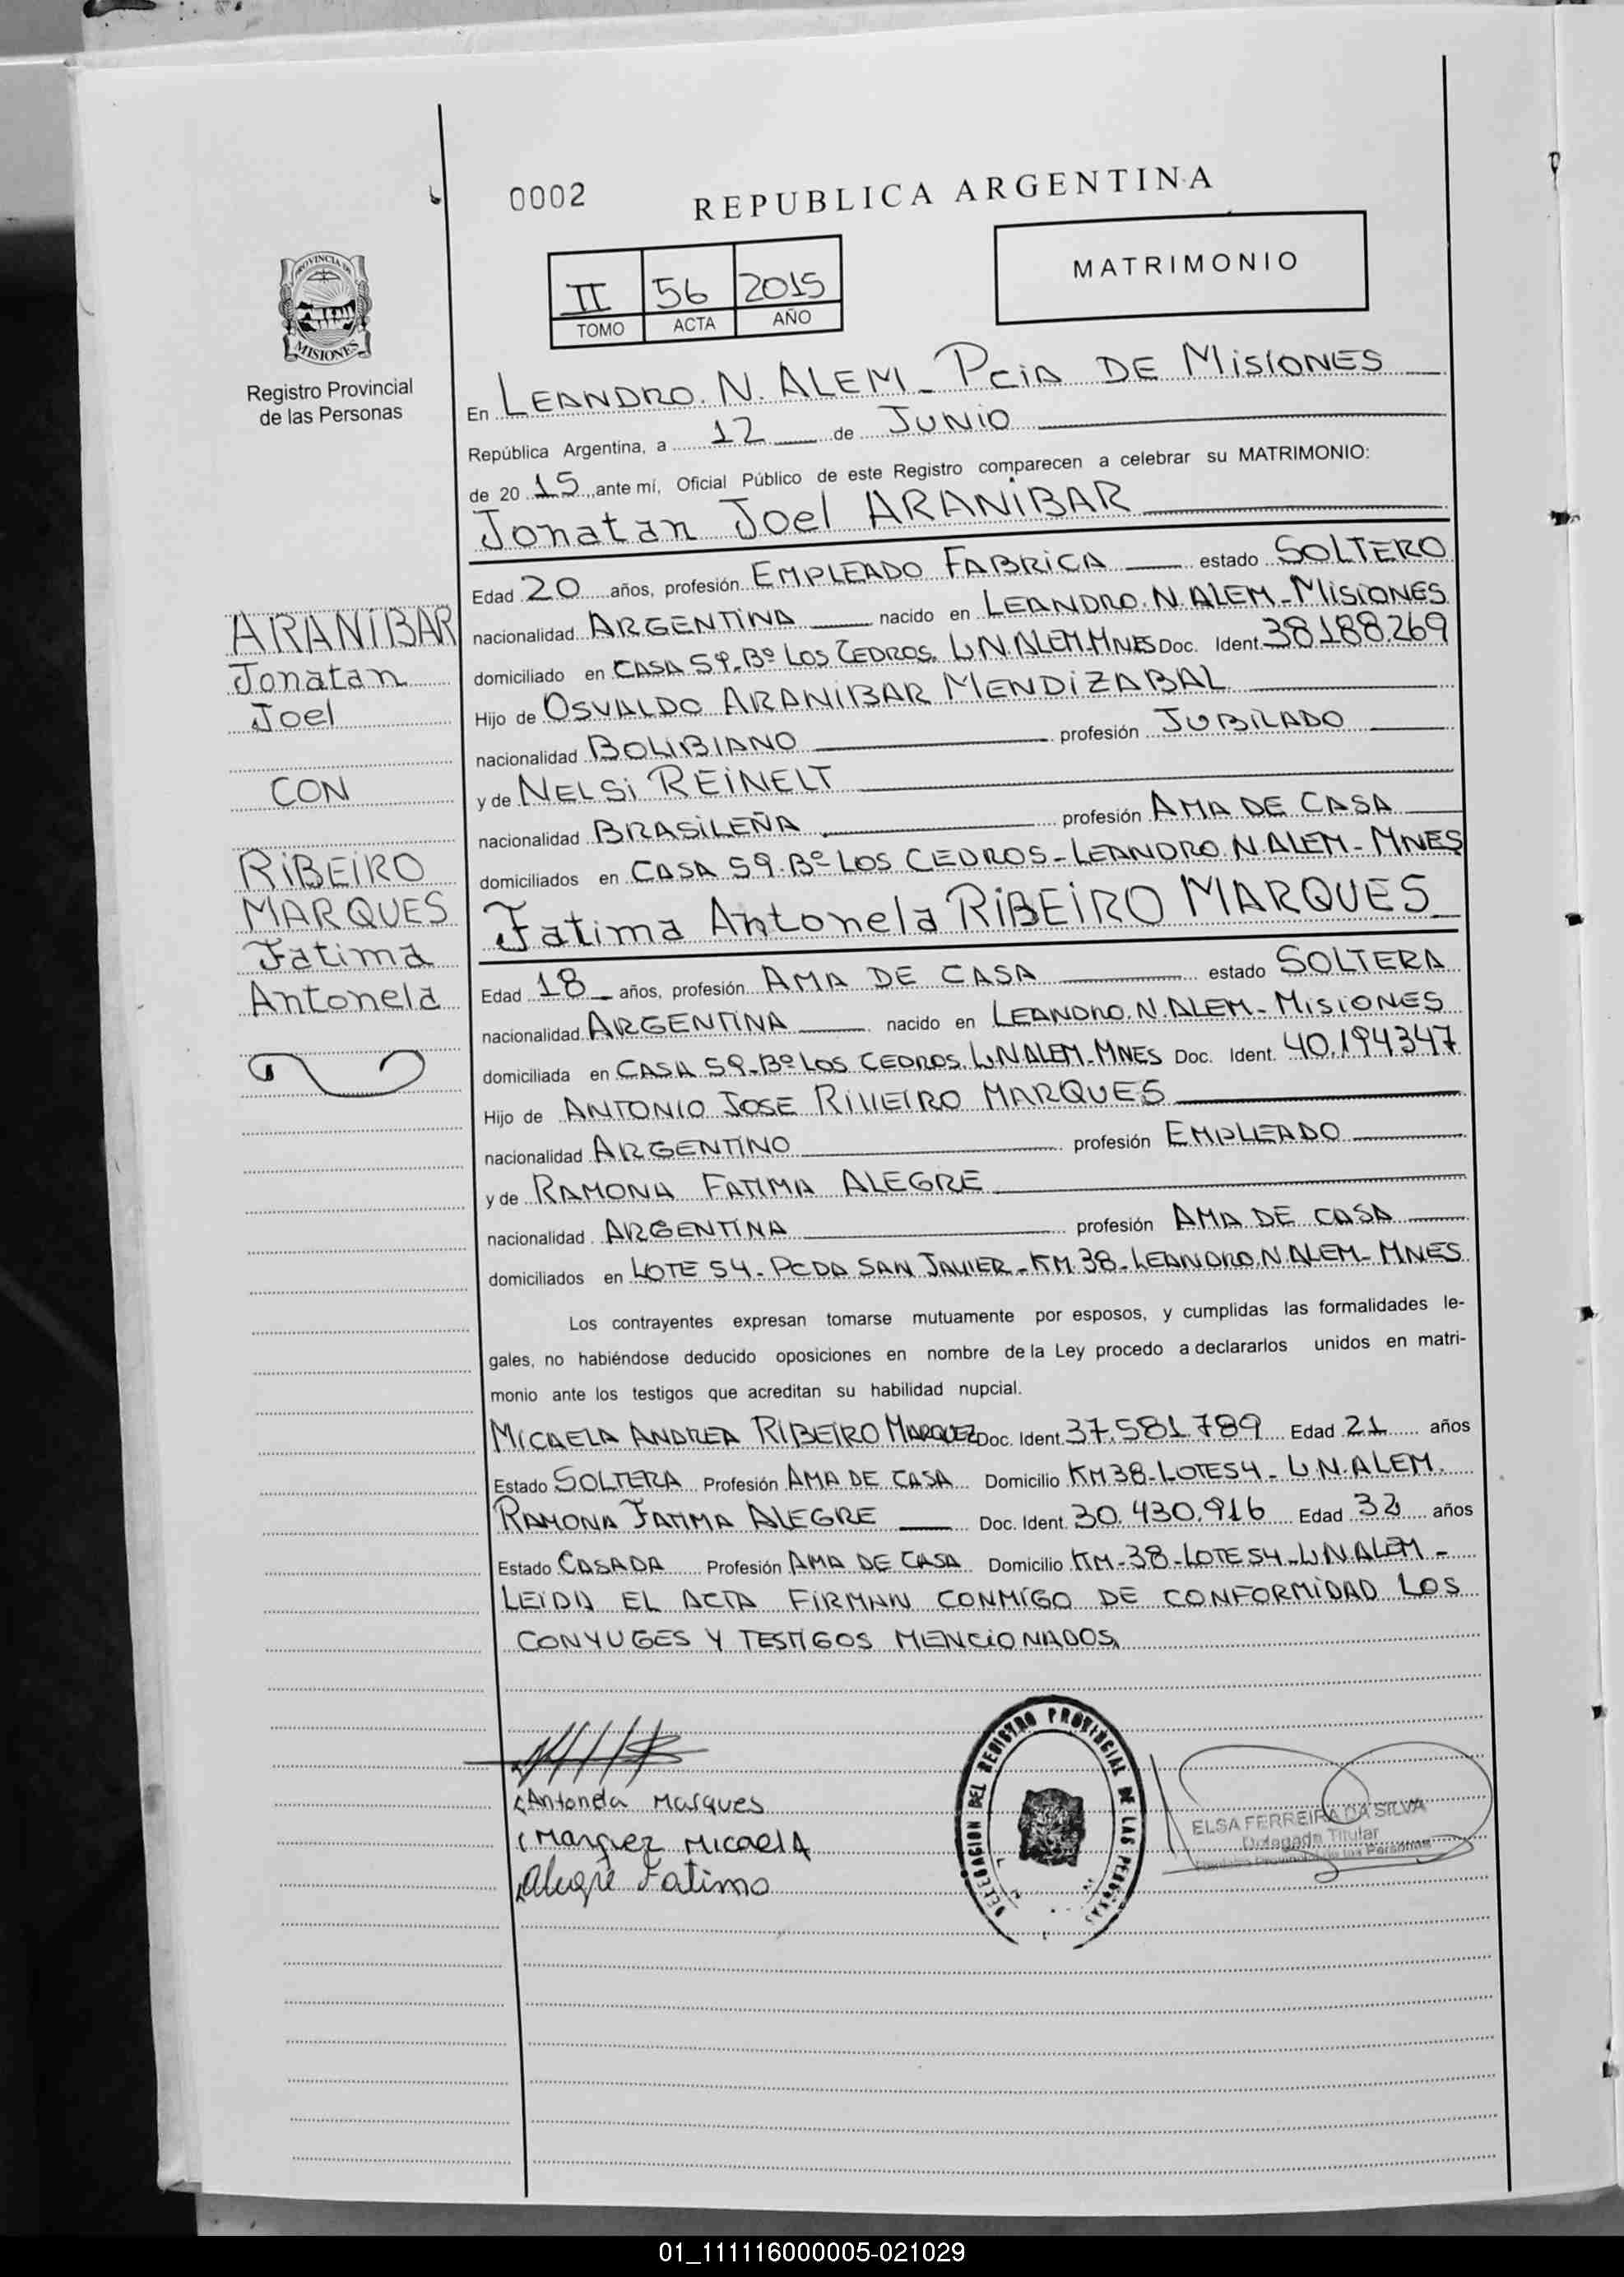 0002
REPUBLICA ARGENTINA
PROVINCIA DE
MISIONES
Registro Provincial
de las Personas
II 56 2015
TOMO ACTA AÑO
MATRIMONIO
En LEANDRO. N. ALEM - PCIA DE MISIONES
República Argentina, a 12 de JUNIO
de 20 15, ante mí, Oficial Público de este Registro comparecen a celebrar su MATRIMONIO:
Jonatan Joel ARANIBAR
Edad 20 años, profesión EMPLEADO FABRICA estado SOLTERO
nacionalidad ARGENTINA nacido en LEANDRO. N. ALEM - MISIONES
domiciliado en CASA 59. Bº LOS CEDROS. L.N.ALEM-MNES Doc. Ident. 38188.269
Hijo de OSVALDO ARANIBAR MENDIZABAL
nacionalidad BOLIBIANO profesión JUBILADO
y de NELSI REINELT
nacionalidad BRASILEÑA profesión AMA DE CASA
domiciliados en CASA 59. Bº LOS CEDROS - LEANDRO. N. ALEM - MNES
Fatima Antonela RIBEIRO MARQUES
Edad 18 años, profesión AMA DE CASA estado SOLTERA
nacionalidad ARGENTINA nacido en LEANDRO. N. ALEM - MISIONES
domiciliada en CASA 59 - Bº LOS CEDROS. L.N.ALEM - MNES Doc. Ident. 40.194347
Hijo de ANTONIO JOSE RIVEIRO MARQUES
nacionalidad ARGENTINO profesión EMPLEADO
y de RAMONA FATIMA ALEGRE
nacionalidad ARGENTINA profesión AMA DE CASA
domiciliados en LOTE 54 - PCDA SAN JAVIER - KM 38 - LEANDRO. N. ALEM - MNES
Los contrayentes expresan tomarse mutuamente por esposos, y cumplidas las formalidades le-
gales, no habiéndose deducido oposiciones en nombre de la Ley procedo a declararlos unidos en matri-
monio ante los testigos que acreditan su habilidad nupcial.
MICAELA ANDREA RIBEIRO MARQUEZ Doc. Ident. 37.581.789 Edad 21 años
Estado SOLTERA Profesión AMA DE CASA Domicilio KM 38 - LOTE 54 - L.N.ALEM.
RAMONA FATIMA ALEGRE Doc. Ident. 30.430.916 Edad 32 años
Estado CASADA Profesión AMA DE CASA Domicilio KM - 38 - LOTE 54 - L.N.ALEM -
LEIDA EL ACTA FIRMAN CONMIGO DE CONFORMIDAD LOS
CONYUGES Y TESTIGOS MENCIONADOS.
ARANIBAR
Jonatan
Joel
CON
RIBEIRO
MARQUES
Fatima
Antonela
Antonela Marques
Marquez Micaela
Alegre Fatima
DELEGACION DEL REGISTRO PROVINCIAL DE LAS PERSONAS
ELSA FERREIRA DA SILVA
Delegada Titular
Registro Provincial de las Personas
01_111116000005-021029